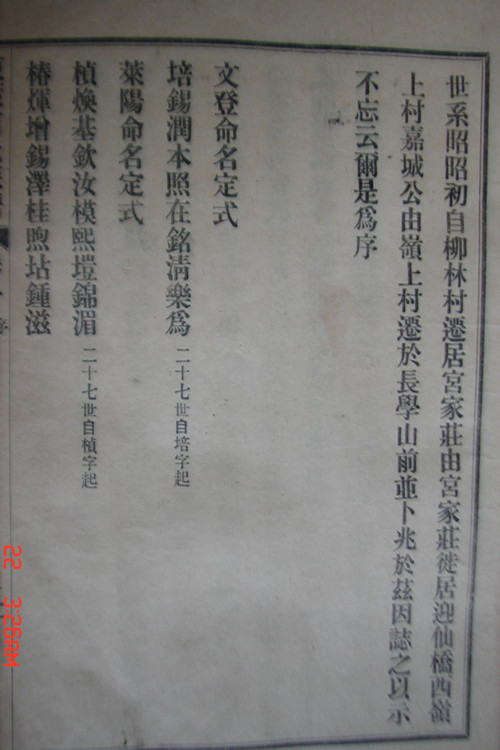 世系昭昭初自柳林村遷居宮家莊由宮家莊徙居迎仙橋西嶺
上村嘉城公由嶺上村遷於長學山前並卜兆於茲因誌之以示
不忘云爾是為序
文登命名定式
培錫潤本照在銘清樂為 二十七世自培字起
萊陽命名定式
楨煥基欽汝模熙塏錦湄 二十七世自楨字起
椿煇增錫澤桂煦坫鍾滋
22 3:26AM